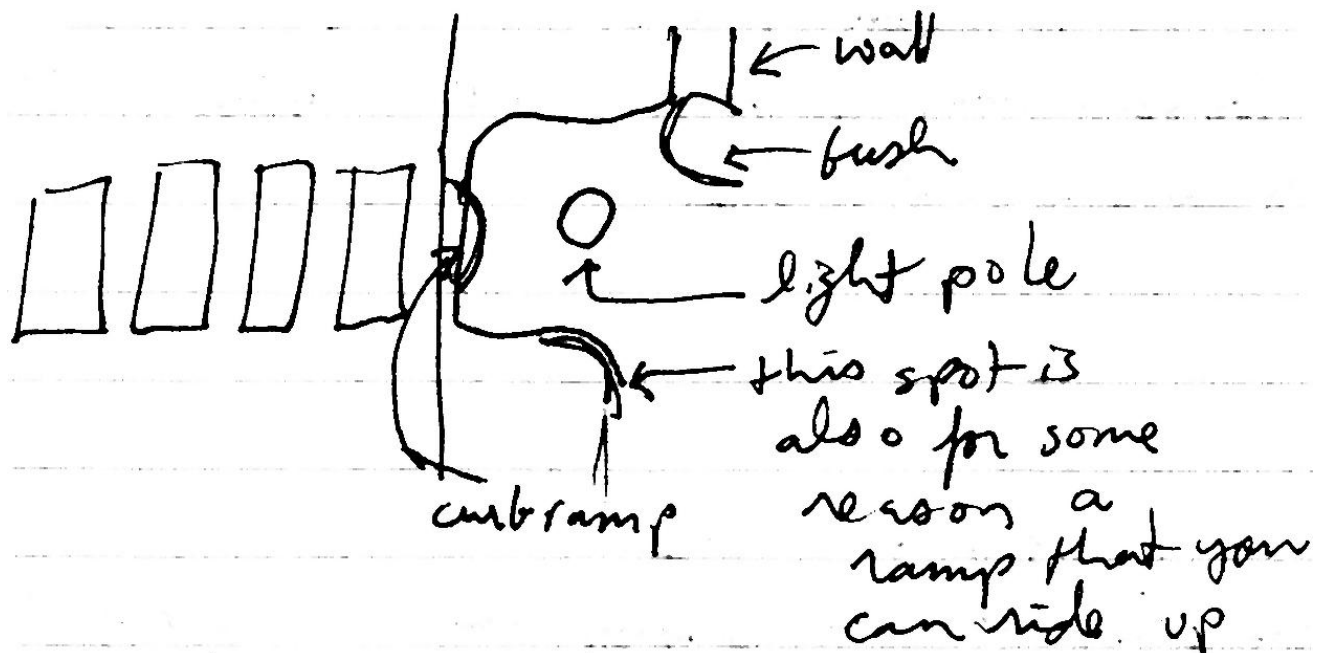 wall
bush
light pole
this spot is
also for some
reason a
ramp that you
can ride up
curbramp